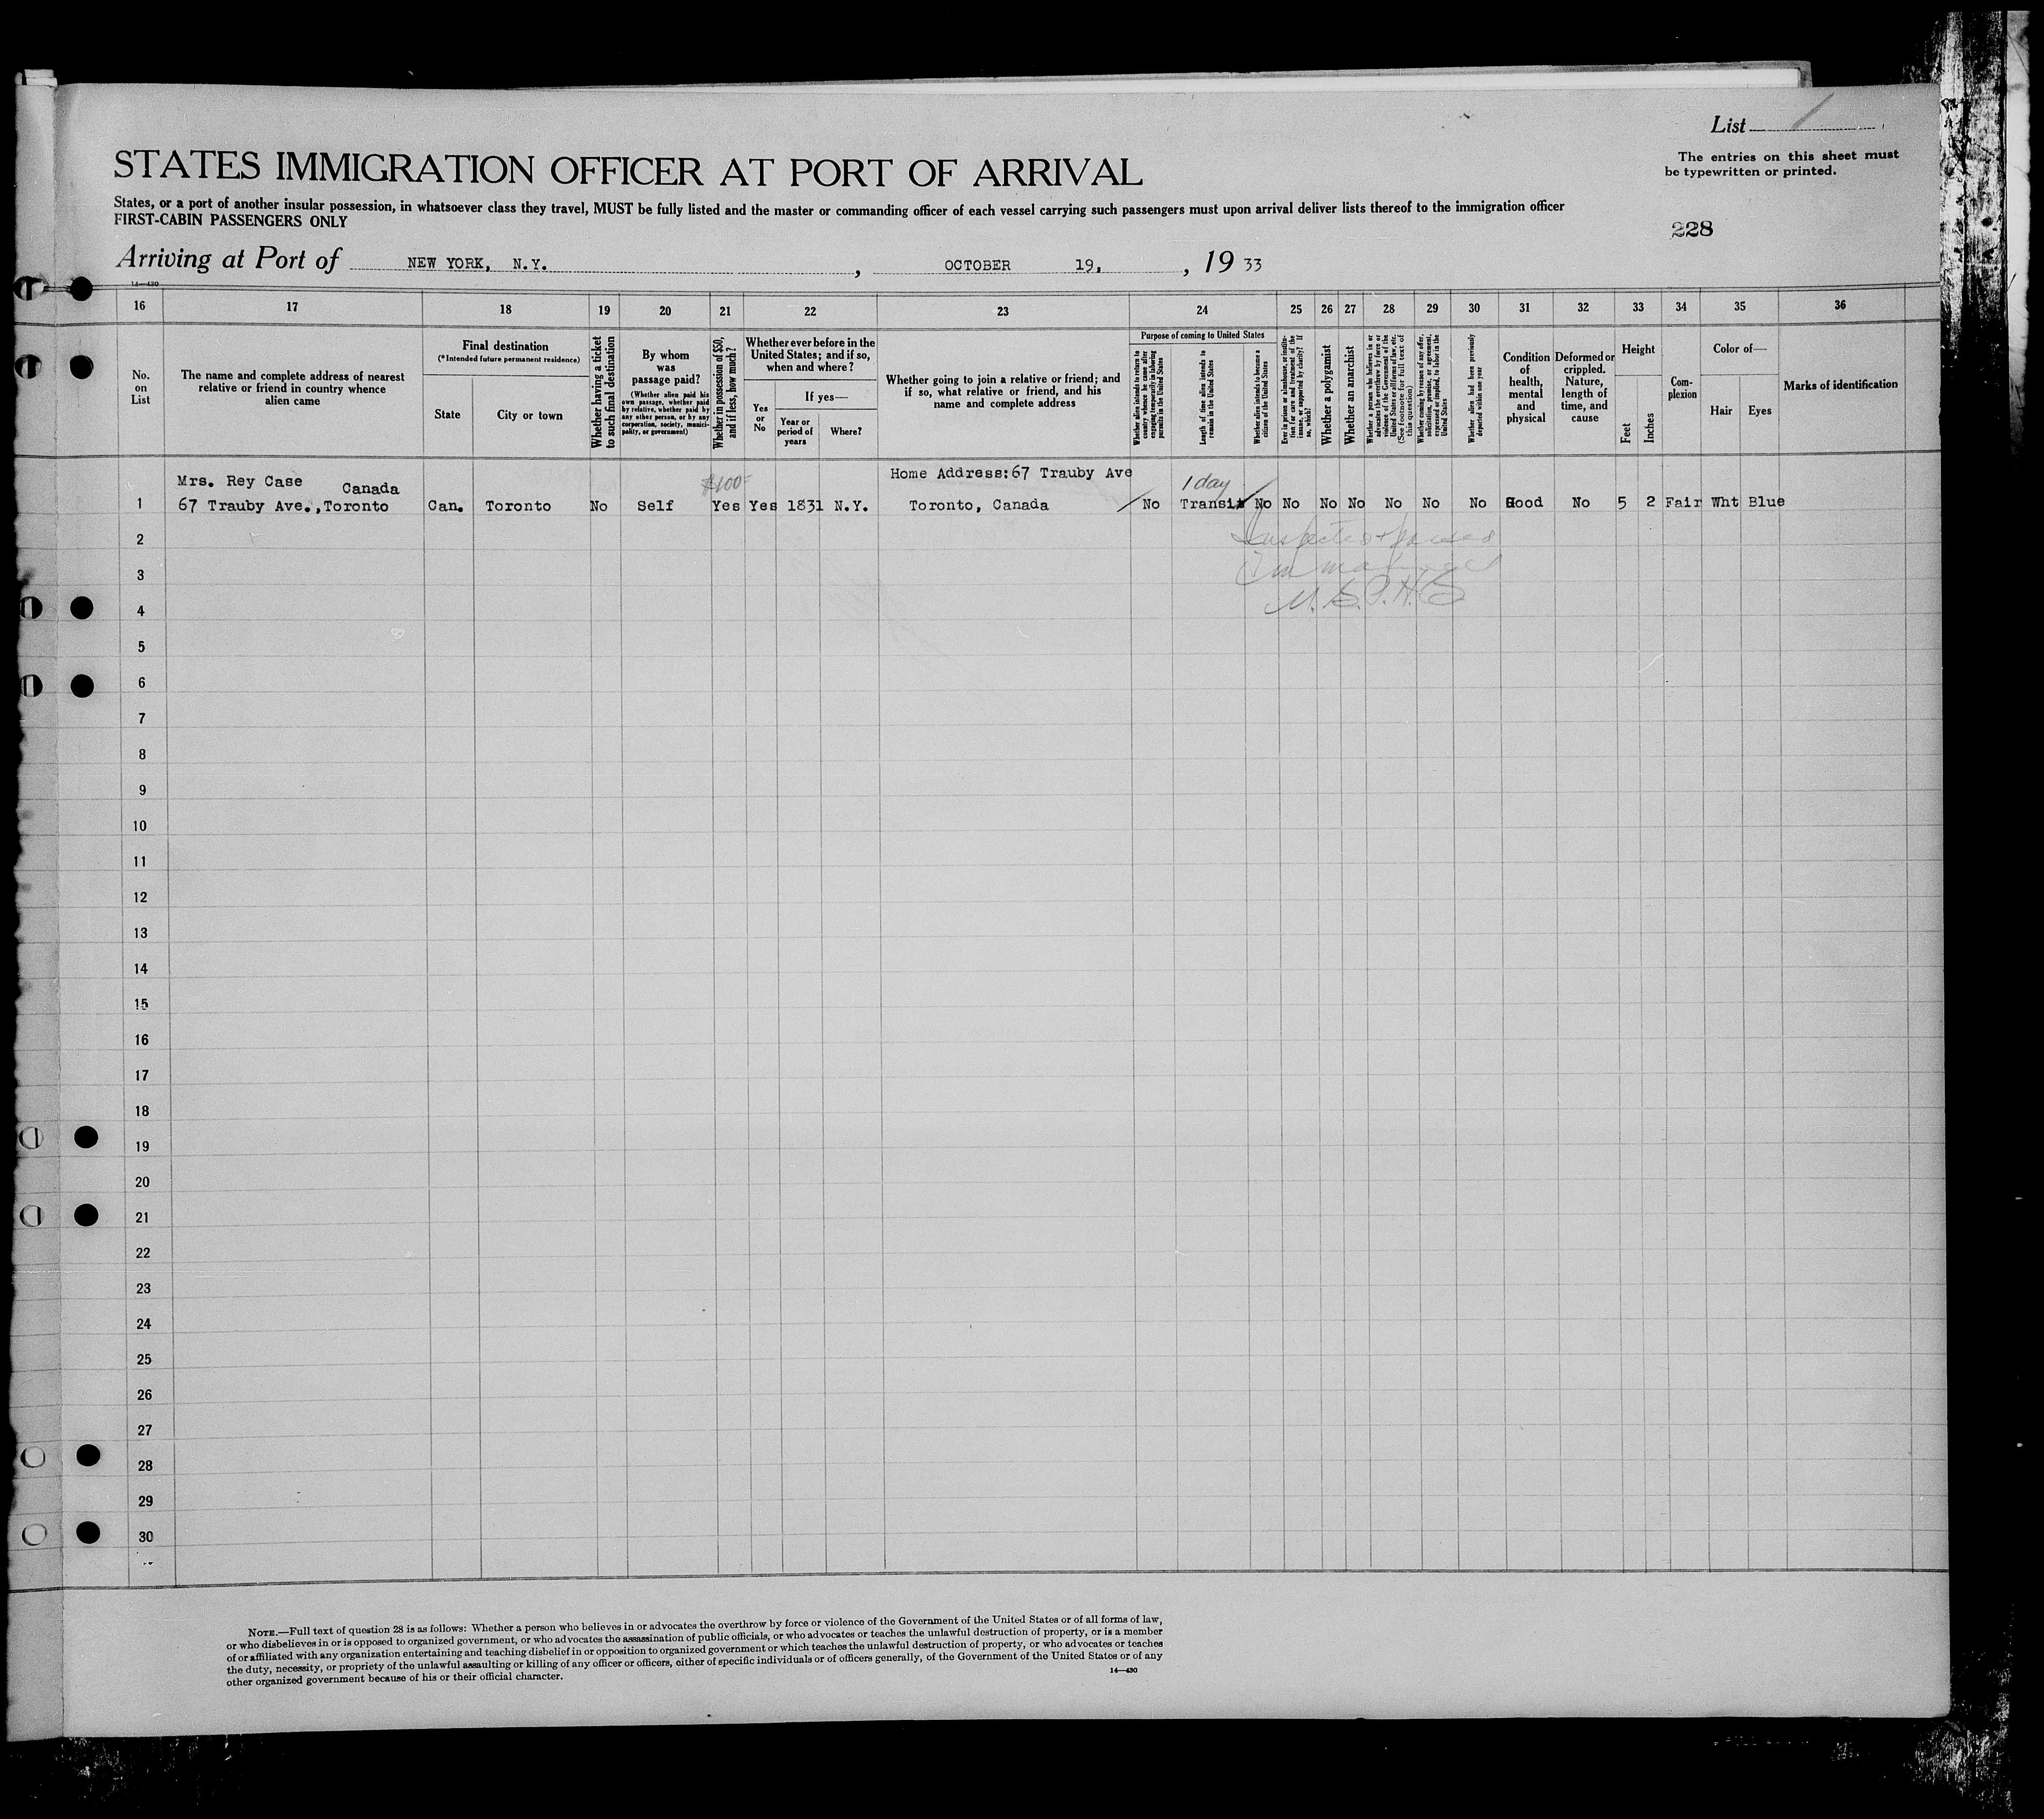 List 1
The entries on this sheet must
be typewritten or printed.
STATES IMMIGRATION OFFICER AT PORT OF ARRIVAL
States, or a port of another insular possession, in whatsoever class they travel, MUST be fully listed and the master or commanding officer of each vessel carrying such passengers must upon arrival deliver lists thereof to the immigration officer
FIRST-CABIN PASSENGERS ONLY
228
Arriving at Port of NEW YORK, N.Y. , OCTOBER 19, , 19 33
14—430
16 17 18 19 20 21 22 23 24 25 26 27 28 29 30 31 32 33 34 35 36
No.
on
List
The name and complete address of nearest
relative or friend in country whence
alien came
Final destination
(*Intended future permanent residence)
State
City or town
Whether having a ticket
to such final destination
By whom
was
passage paid?
(Whether alien paid his
own passage, whether paid
by relative, whether paid by
any other person, or by any
corporation, society, munici-
pality, or government)
Whether in possession of $50,
and if less, how much?
Whether ever before in the
United States; and if so,
when and where?
Yes
or
No
If yes—
Year or
period of
years
Where?
Whether going to join a relative or friend; and
if so, what relative or friend, and his
name and complete address
Purpose of coming to United States
Whether alien intends to return to
country whence he came after
engaging temporarily in laboring
pursuits in the United States
Length of time alien intends to
remain in the United States
Whether alien intends to become a
citizen of the United States
Ever in prison or almshouse, or institu-
tion for care and treatment of the
insane, or supported by charity? If
so, which?
Whether a polygamist
Whether an anarchist
Whether a person who believes in or
advocates the overthrow by force or
violence of the Government of the
United States or all forms of law, etc.
(See footnote for full text of
this question)
Whether coming by reason of any offer,
solicitation, promise, or agreement,
expressed or implied, to labor in the
United States
Whether alien had been previously
deported within one year
Condition
of
health,
mental
and
physical
Deformed or
crippled.
Nature,
length of
time, and
cause
Height
Feet
Inches
Com-
plexion
Color of—
Hair
Eyes
Marks of identification
Mrs. Rey Case
Canada
$100-
Home Address:67 Trauby Ave
1 day
1 67 Trauby Ave.,Toronto Can. Toronto No Self Yes Yes 1831 N.Y. Toronto, Canada No Transit No No No No No No No Good No 5 2 Fair Wht Blue
2
Inspected + passed
3
4
5
6
7
8
9
10
11
12
13
14
15
16
17
18
19
20
21
22
23
24
25
26
27
28
29
30
NOTE.—Full text of question 28 is as follows: Whether a person who believes in or advocates the overthrow by force or violence of the Government of the United States or of all forms of law,
or who disbelieves in or is opposed to organized government, or who advocates the assassination of public officials, or who advocates or teaches the unlawful destruction of property, or is a member
of or affiliated with any organization entertaining and teaching disbelief in or opposition to organized government or which teaches the unlawful destruction of property, or who advocates or teaches
the duty, necessity, or propriety of the unlawful assaulting or killing of any officer or officers, either of specific individuals or of officers generally, of the Government of the United States or of any
other organized government because of his or their official character.
14—430